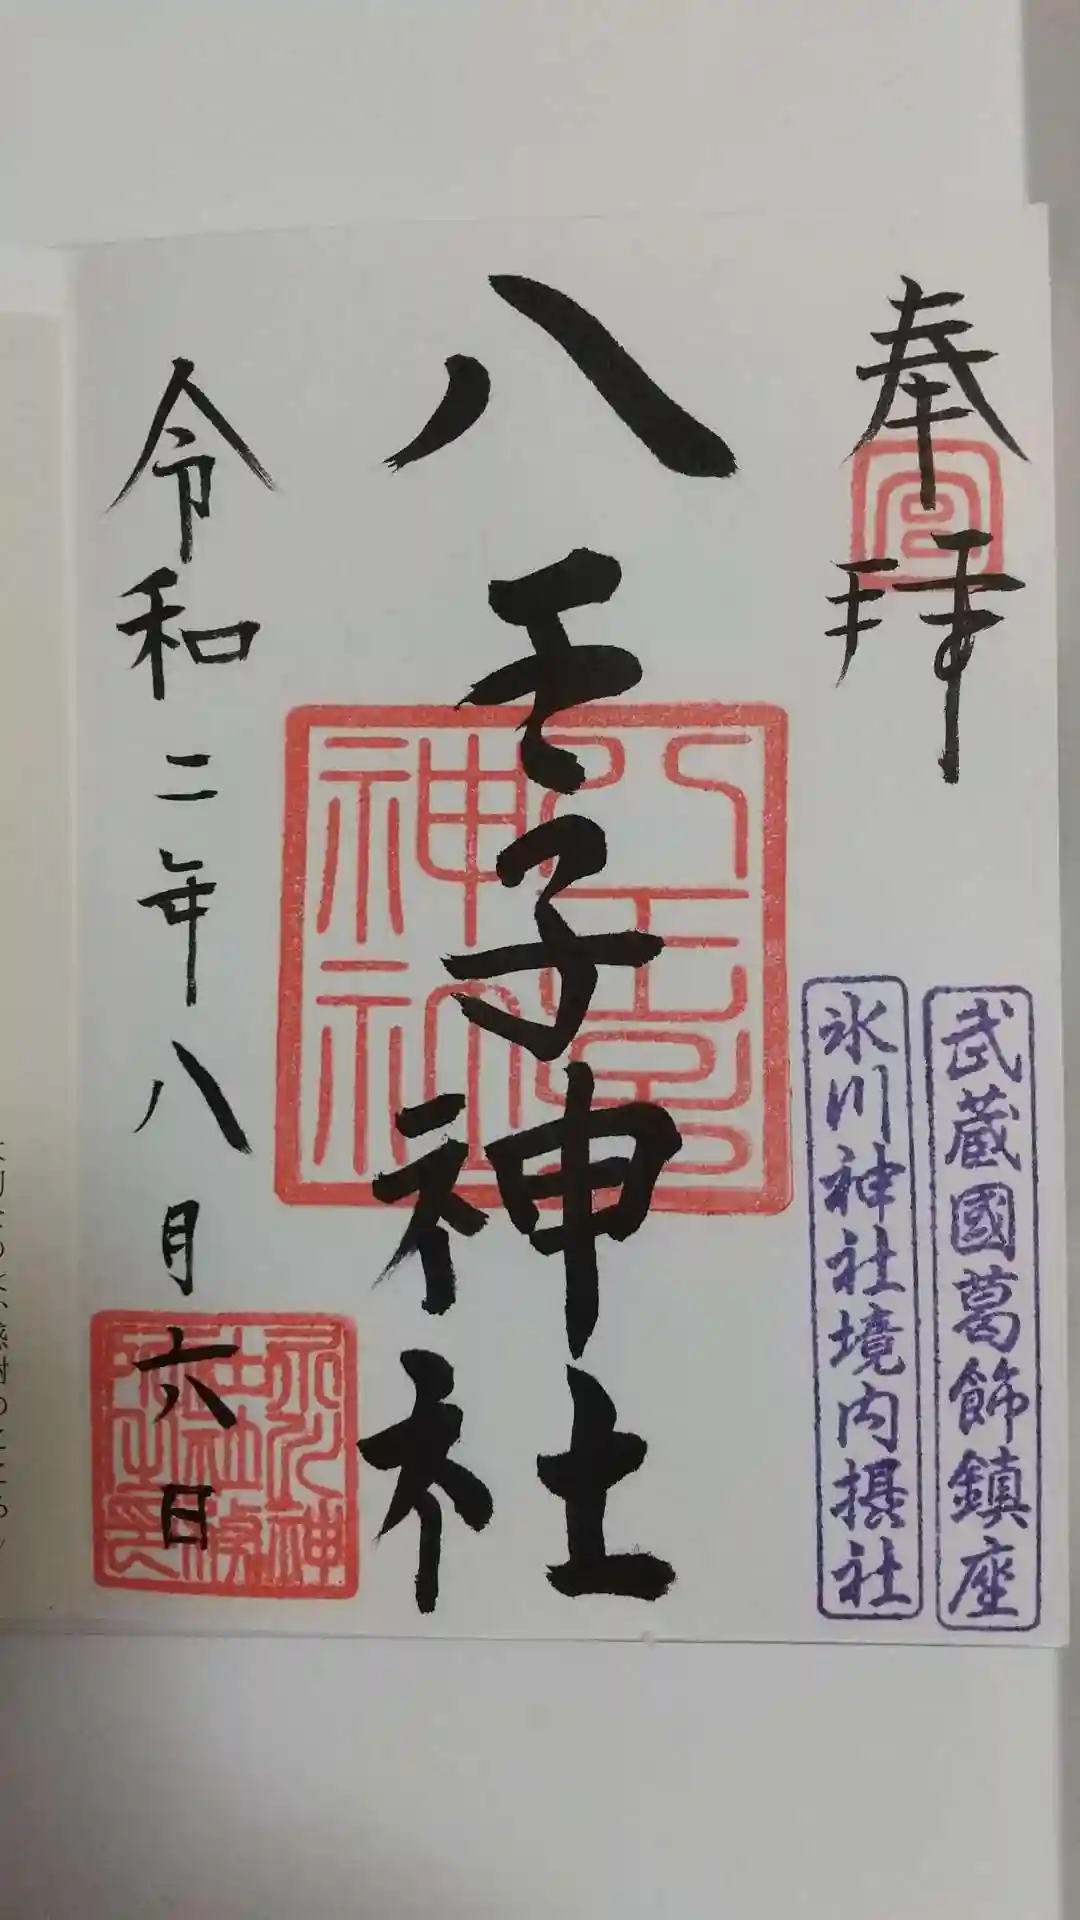 奉拝
武蔵國葛飾鎮座
氷川神社境内摂社
八王子神社
八王子神社
令和二年八月六日